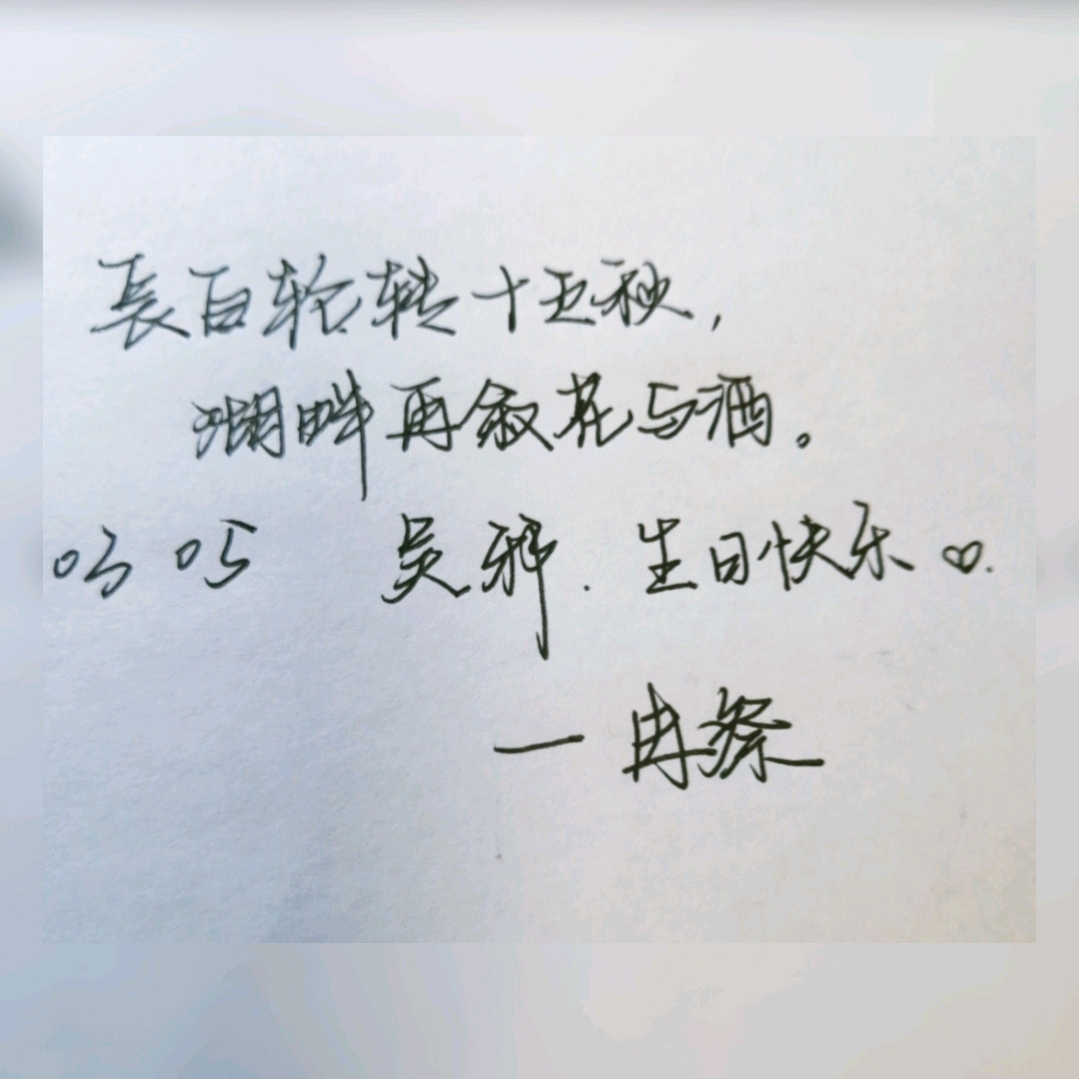 長白轮转十五秋，
湖畔再叙花与酒。
03 05 吴邪.生日快乐♡.
一冉祭